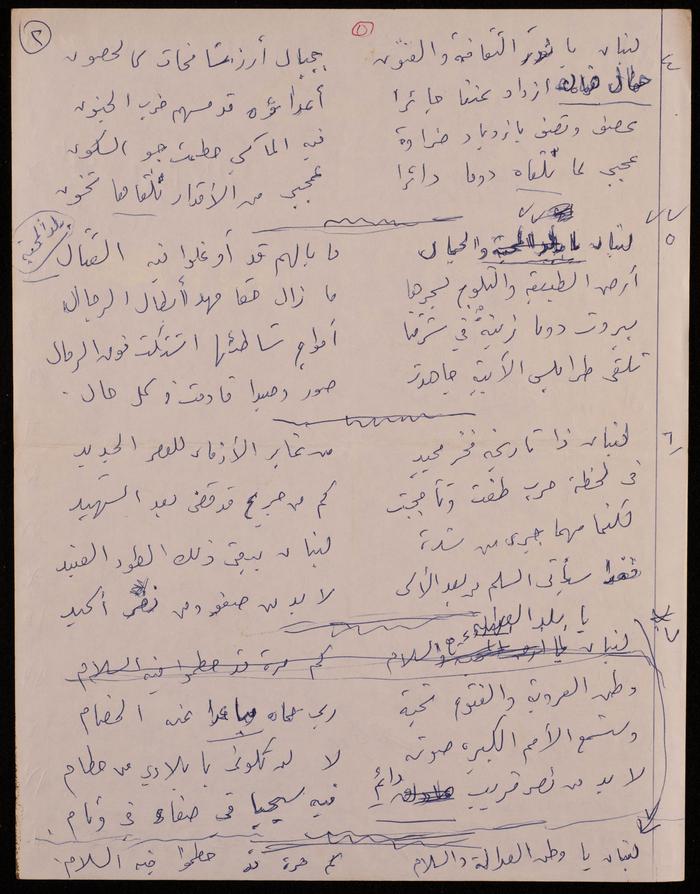 ٢
٥
٤ لبنان يا نور الثقافة والفنون جبال أرز شامخات كالحصون
ازداد عنفا جائرا أعداؤه قد مسهم ضرب الجنون
عصف وقصف بازدياد ضراوة فيه المآسي حطمت جو السكون
عجبي لما تلقاه دوما دائرا عجبي من الأقدار تلقاها تخون
٥ لبنان يا بلد المحبة والجمال ما بالهم قد أوغلوا فيه القتال
بلد المحبة
أرض الطبيعة والثلوج سحرها ما زال حقا مهد أبطال الرجال
بيروت دوما زينة في شرقنا أمواج شاطئها اشتكت فوق الرمال
تلقى طرابلس الأبية جاهدت صور وصيدا قاومت في كل حال
٦ لبنان ذا تاريخه فخر مجيد من غابر الأزمان للعصر الجديد
في لحظة حرب طغت وتأججت كم من جريح قد قضى بعد الشهيد
فكلما مهما جرى من شدة لبنان يبقى ذلك الطود العنيد
فغدا سيأتي السلم من بعد الأسى لا بد من صفو ومن نصر أكيد
يا بلد
٧ لبنان يا أرض المحبة والسلام كم مرة قد حطموا فيه السلام
وطن العروبة والفنون تحية ربي حماه مباعدا عنه الخصام
وستسمع الأمم الكبيرة صوته لا لن تكوني يا بلادي من حطام
لا بد من نصر قريب دائم فيه سيحيا في صفاء في وئام
لبنان يا وطن العدالة والسلام كم مرة قد حطموا فيه السلام